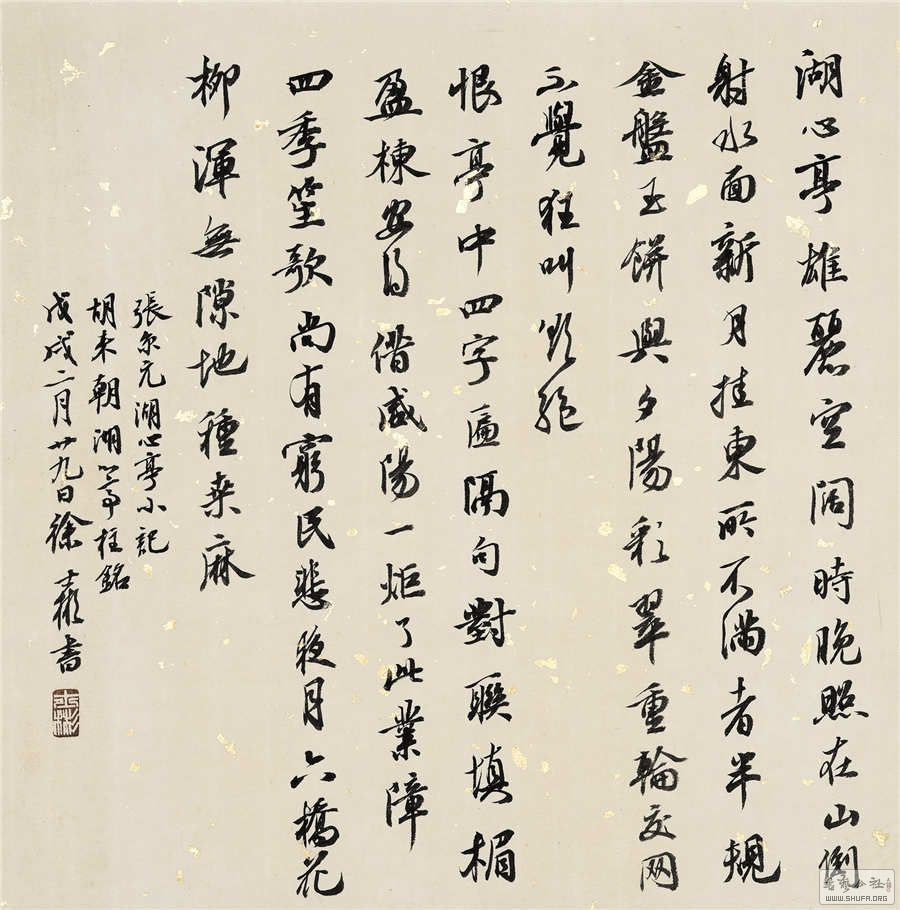 湖心亭雄麗空闊時晚照在山倒
射水面新月挂東所不滿者半規
金盤玉餅與夕陽彩翠重輪交网
不覺狂叫欲絕
恨亭中四字匾隔句對聯填楣
盈棟安得借咸陽一炬了此業障
四季笙歌尚有窮民悲夜月六橋花
柳渾無隙地種桑麻
張京元湖心亭小記
胡來朝湖心亭柱銘
戊戌二月廿九日徐士彬書
WWW.SHUFA.ORG